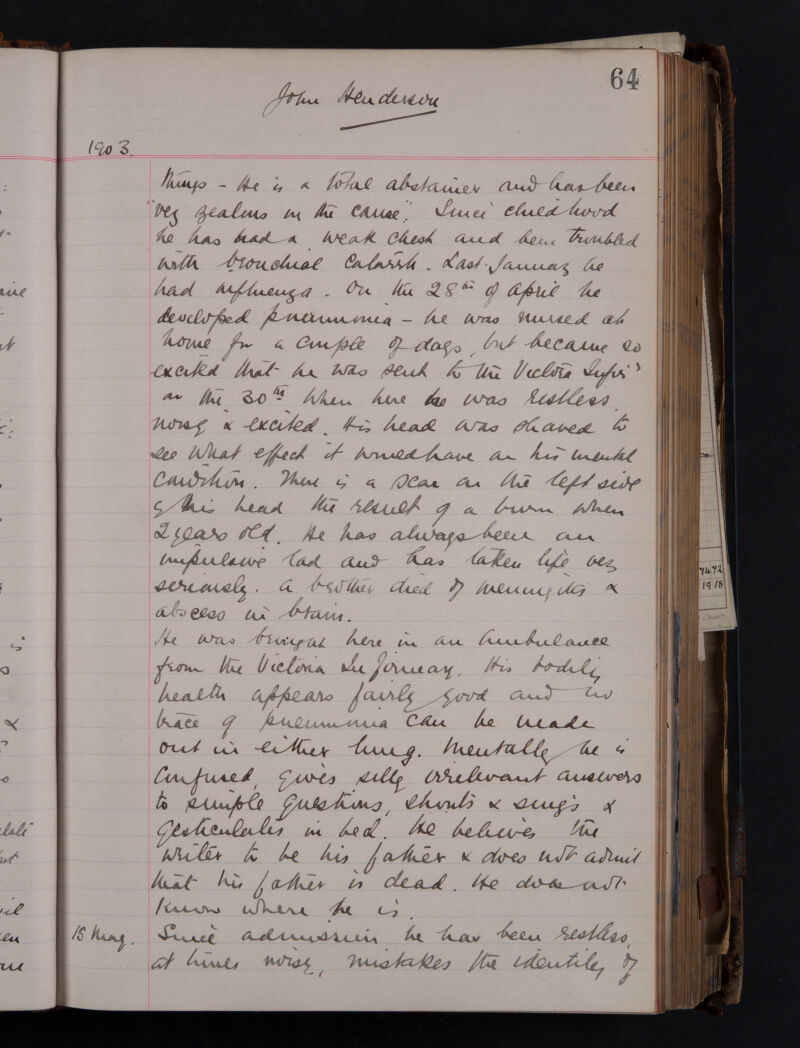 64
John Henderson
1903.
things - He is a total abstainer and has been
"very zealous in the cause". Since childhood
he has had a weak chest and been troubled
with bronchial catarrh. Last January he
had influenza. On the 28th of April he
developed pneumonia - he was nursed at
home for a couple of days, but became so
excited that he was sent to the Victoria Infir'
on the 30th when here he was restless,
noisy & excited. His head was shaved to
see what effect it would have on his mental
condition. There is a scar on the left side
of his head the result of a burn when
2 years old. He has always been an
impulsive lad and has taken life very
seriously. A brother died of meningitis &
abscess in brain.
He was brought here in an Ambulance
from the Victoria Infirmary. His bodily
health appears fairly good and no
trace of pneumonia can be made
out in either lung. Mentally he is
confused, gives silly irrelevant answers
to simple questions, shouts & sings &
gesticulates in bed. He believes the
writer to be his father & does not admit
that his father is dead. He does not
know where he is.
15 May. Since admission he has been restless,
at times noisy, mistakes the identity of
7472
1918
Chart